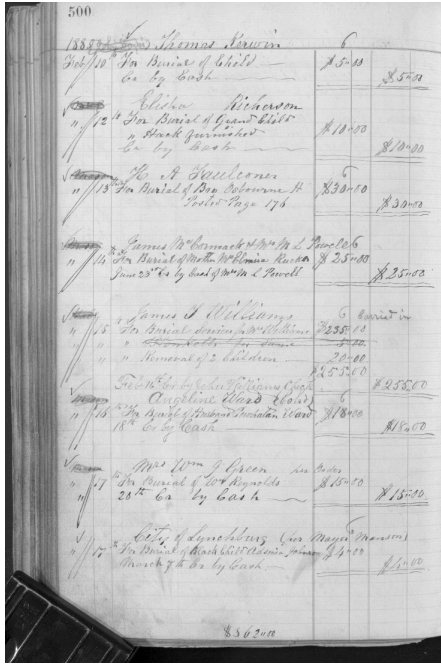 500
1888 Thomas Kerwin 6
Feb 10th For Burial of Child $5.00
Cr by Cash $5.00
Elisha Richerson
" 12th For Burial of Grand Child
" Hack furnished $10.00
Cr by Cash $10.00
H A Faulconer 6
" 13th For Burial of Boy Osbourne H $30.00
Posted Page 176 $30.00
James McCormack & Mrs M L Powell 6
" 14th For Burial of Mother Mrs Elmira Rucker $25.00
June 23rd Cr by Cash of Mrs M L Powell $25.00
James T Williams 6 Carried in
" 15 For Burial Services for Mrs Williams $235.00
" " for same 5.00
" " Removal of 2 Children 20.00
$255.00
Feb 16th Cr by John Williams Check $255.00
Angeline Ward (Cold) 6
" 16th For Burial of Husband Powhatan Ward $18.00
18th Cr by Cash $18.00
Mrs Wm J Green per Order
" 17th For Burial of Wm Reynolds $15.00
20th Cr by Cash $15.00
City of Lynchburg (per Mayor Manson) 6
" 17th For Burial of Black Child Johnson $4.00
March 7th Cr by Cash $4.00
$362.00